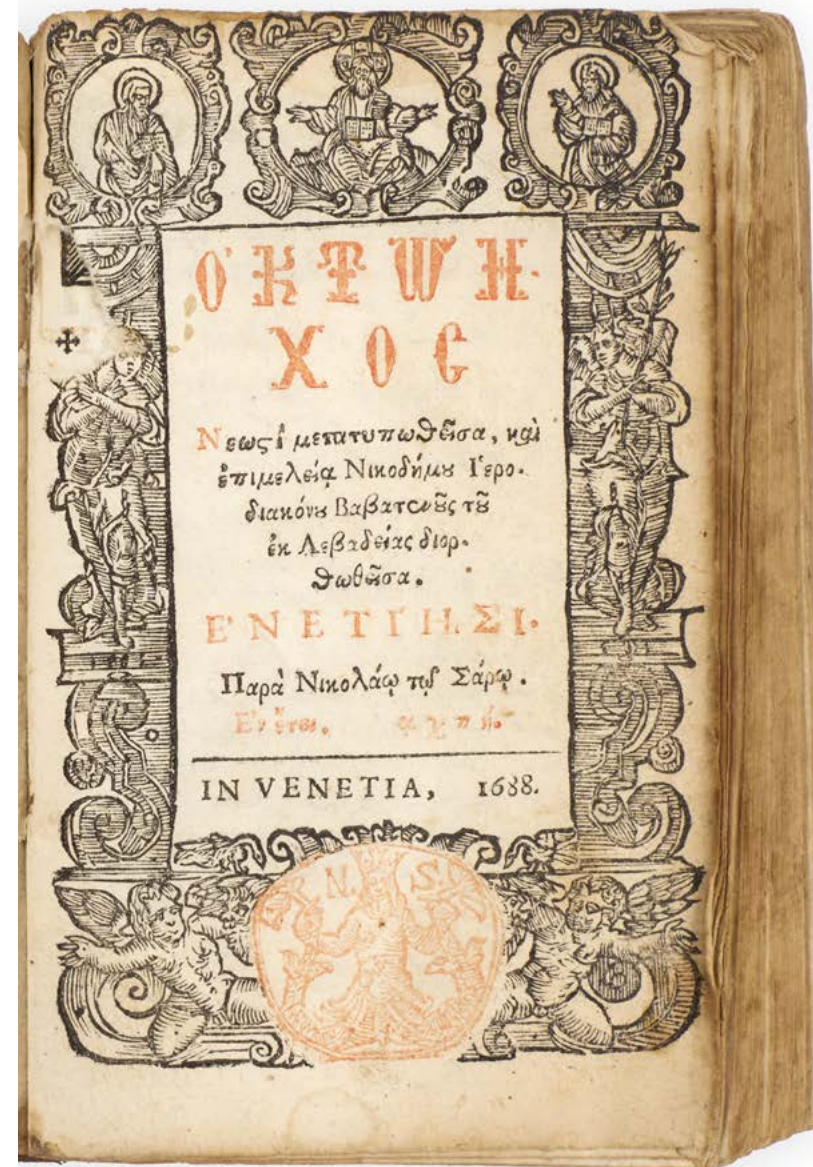 ὈΚΤΩΗ-
ΧΟΣ
Νεωςὶ μετατυπωθεῖσα, καὶ
ἐπιμελείᾳ Νικοδήμου Ἱερο-
διακόνου Βαβατσνοῦς τοῦ
ἐκ Λεβαδείας διορ-
θωθεῖσα.
ἘΝΕΤΙΗΣΙ.
Παρὰ Νικολάῳ τῷ Σάρῳ.
Ἐν ἔτει. αχπή.
IN VENETIA, 1688.
N. S.